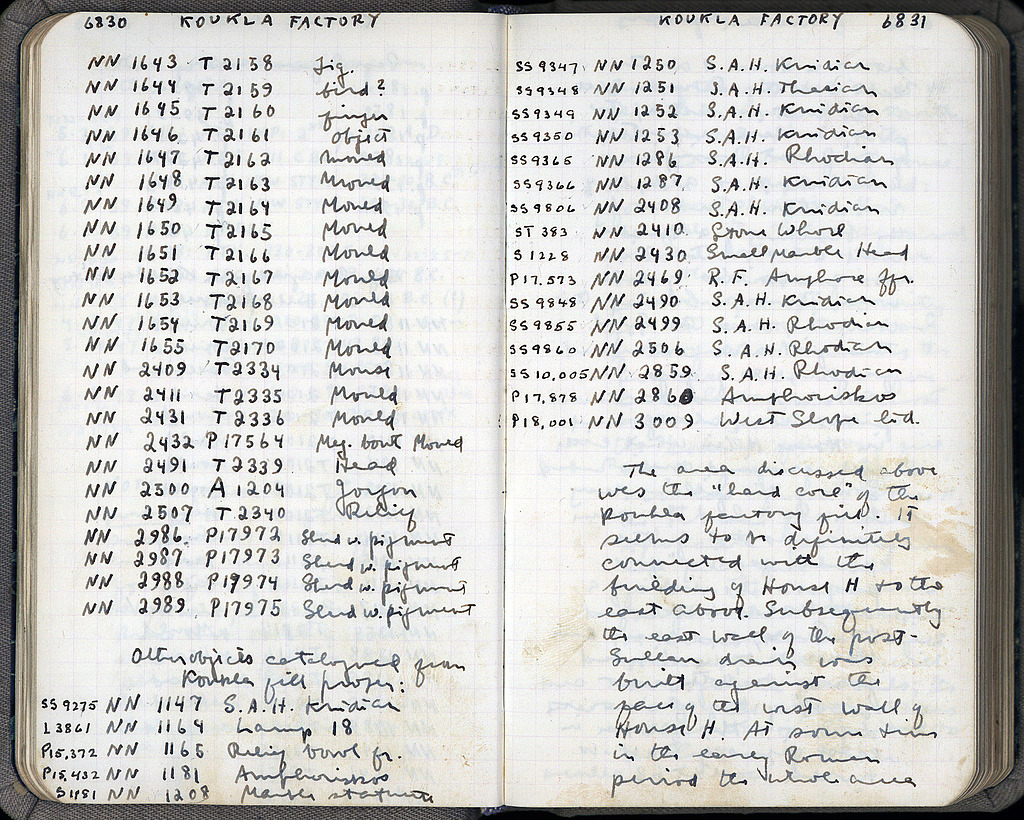 6830 KOUKLA FACTORY
NN 1643 T 2158 Fig.
NN 1644 T 2159 bird?
NN 1645 T 2160 finger
NN 1646 T 2161 object
NN 1647 T 2162 Mould
NN 1648 T 2163 Mould
NN 1649 T 2164 Mould
NN 1650 T 2165 Mould
NN 1651 T 2166 Mould
NN 1652 T 2167 Mould
NN 1653 T 2168 Mould
NN 1654 T 2169 Mould
NN 1655 T 2170 Mould
NN 2409 T 2334 Mouse
NN 2411 T 2335 Mould
NN 2431 T 2336 Mould
NN 2432 P 17564 Meg. bowl Mould
NN 2491 T 2339 Head
NN 2500 A 1204 Gorgon
NN 2507 T 2340 Relief
NN 2986 P17972 Sherd w. pigment
NN 2987 P17973 Sherd w. pigment
NN 2988 P17974 Sherd w. pigment
NN 2989 P17975 Sherd w. pigment
Other objects catalogued from
Koukla fill proper:
SS 9275 NN 1147 S.A.H. Knidian
L3861 NN 1164 Lamp 18
P15,372 NN 1165 Relief bowl fr.
P15,432 NN 1181 Amphoriskos
S1181 NN 1208 Marble statuette
KOUKLA FACTORY 6831
SS 9347 NN 1250 S.A.H. Knidian
SS9348 NN 1251 S.A.H. Thasian
SS9349 NN 1252 S.A.H. Knidian
SS9350 NN 1253 S.A.H. Knidian
SS9365 NN 1286 S.A.H. Rhodian
SS9366 NN 1287 S.A.H. Knidian
SS 9806 NN 2408 S.A.H. Knidian
ST 383 NN 2410 Stone Whorl
S 1228 NN 2430 Small Marble Head
P17,573 NN 2469 R.F. Amphora fr.
SS 9848 NN 2490 S.A.H. Knidian
SS9855 NN 2499 S.A.H. Rhodian
SS9860 NN 2506 S.A.H. Rhodian
SS 10,005 NN 2859 S.A.H. Rhodian
P17,878 NN 2860 Amphoriskos
P18,001 NN 3009 West Slope lid.
The area discussed above
was the "hard core" of the
Koukla factory fill. It
seems to be definitely
connected with the
building of House H to the
east above. Subsequently
the east wall of the post-
Sullan drain was
built against the
face of the west wall of
House H. At some time
in the early Roman
period the whole area